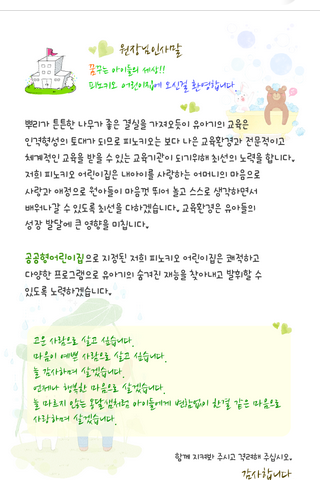 원장님인사말
꿈꾸는 아이들의 세상!!
피노키오 어린이집에 오신걸 환영합니다.
뿌리가 튼튼한 나무가 좋은 결실을 가져오듯이 유아기의 교육은
인격형성의 토대가 되므로 피노키오는 보다 나은 교육환경과 전문적이고
체계적인 교육을 받을 수 있는 교육기관이 되기위해 최선의 노력을 합니다.
저희 피노키오 어린이집은 내아이를 사랑하는 어머니의 마음으로
사랑과 애정으로 원아들이 마음껏 뛰어 놀고 스스로 생각하면서
배워나갈 수 있도록 최선을 다하겠습니다. 교육환경은 유아들의
성장 발달에 큰 영향을 미칩니다.
공공형어린이집으로 지정된 저희 피노키오 어린이집은 쾌적하고
다양한 프로그램으로 유아기의 숨겨진 재능을 찾아내고 발휘할 수
있도록 노력하겠습니다.
고운 사람으로 살고 싶습니다.
마음이 예쁜 사람으로 살고 싶습니다.
늘 감사하며 살겠습니다.
언제나 행복한 마음으로 살겠습니다.
늘 마르지 않는 옹달샘처럼 아이들에게 변함없이 한결 같은 마음으로
사랑하며 살겠습니다.
함께 지켜봐 주시고 격려해 주십시오.
감사합니다